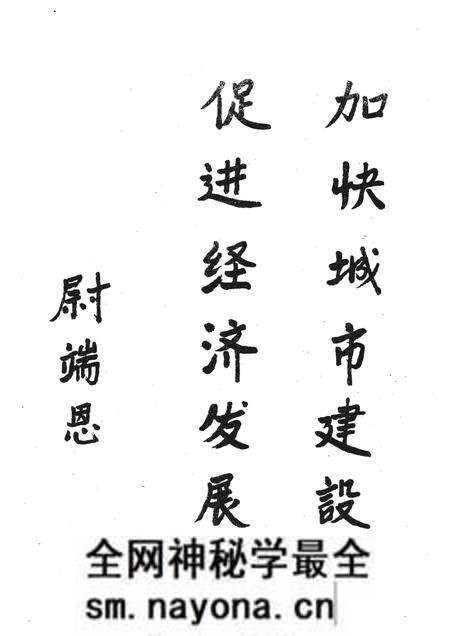 加快城市建設
促进经济发展
尉端恩
全网神秘学最全
sm.nayona.cn